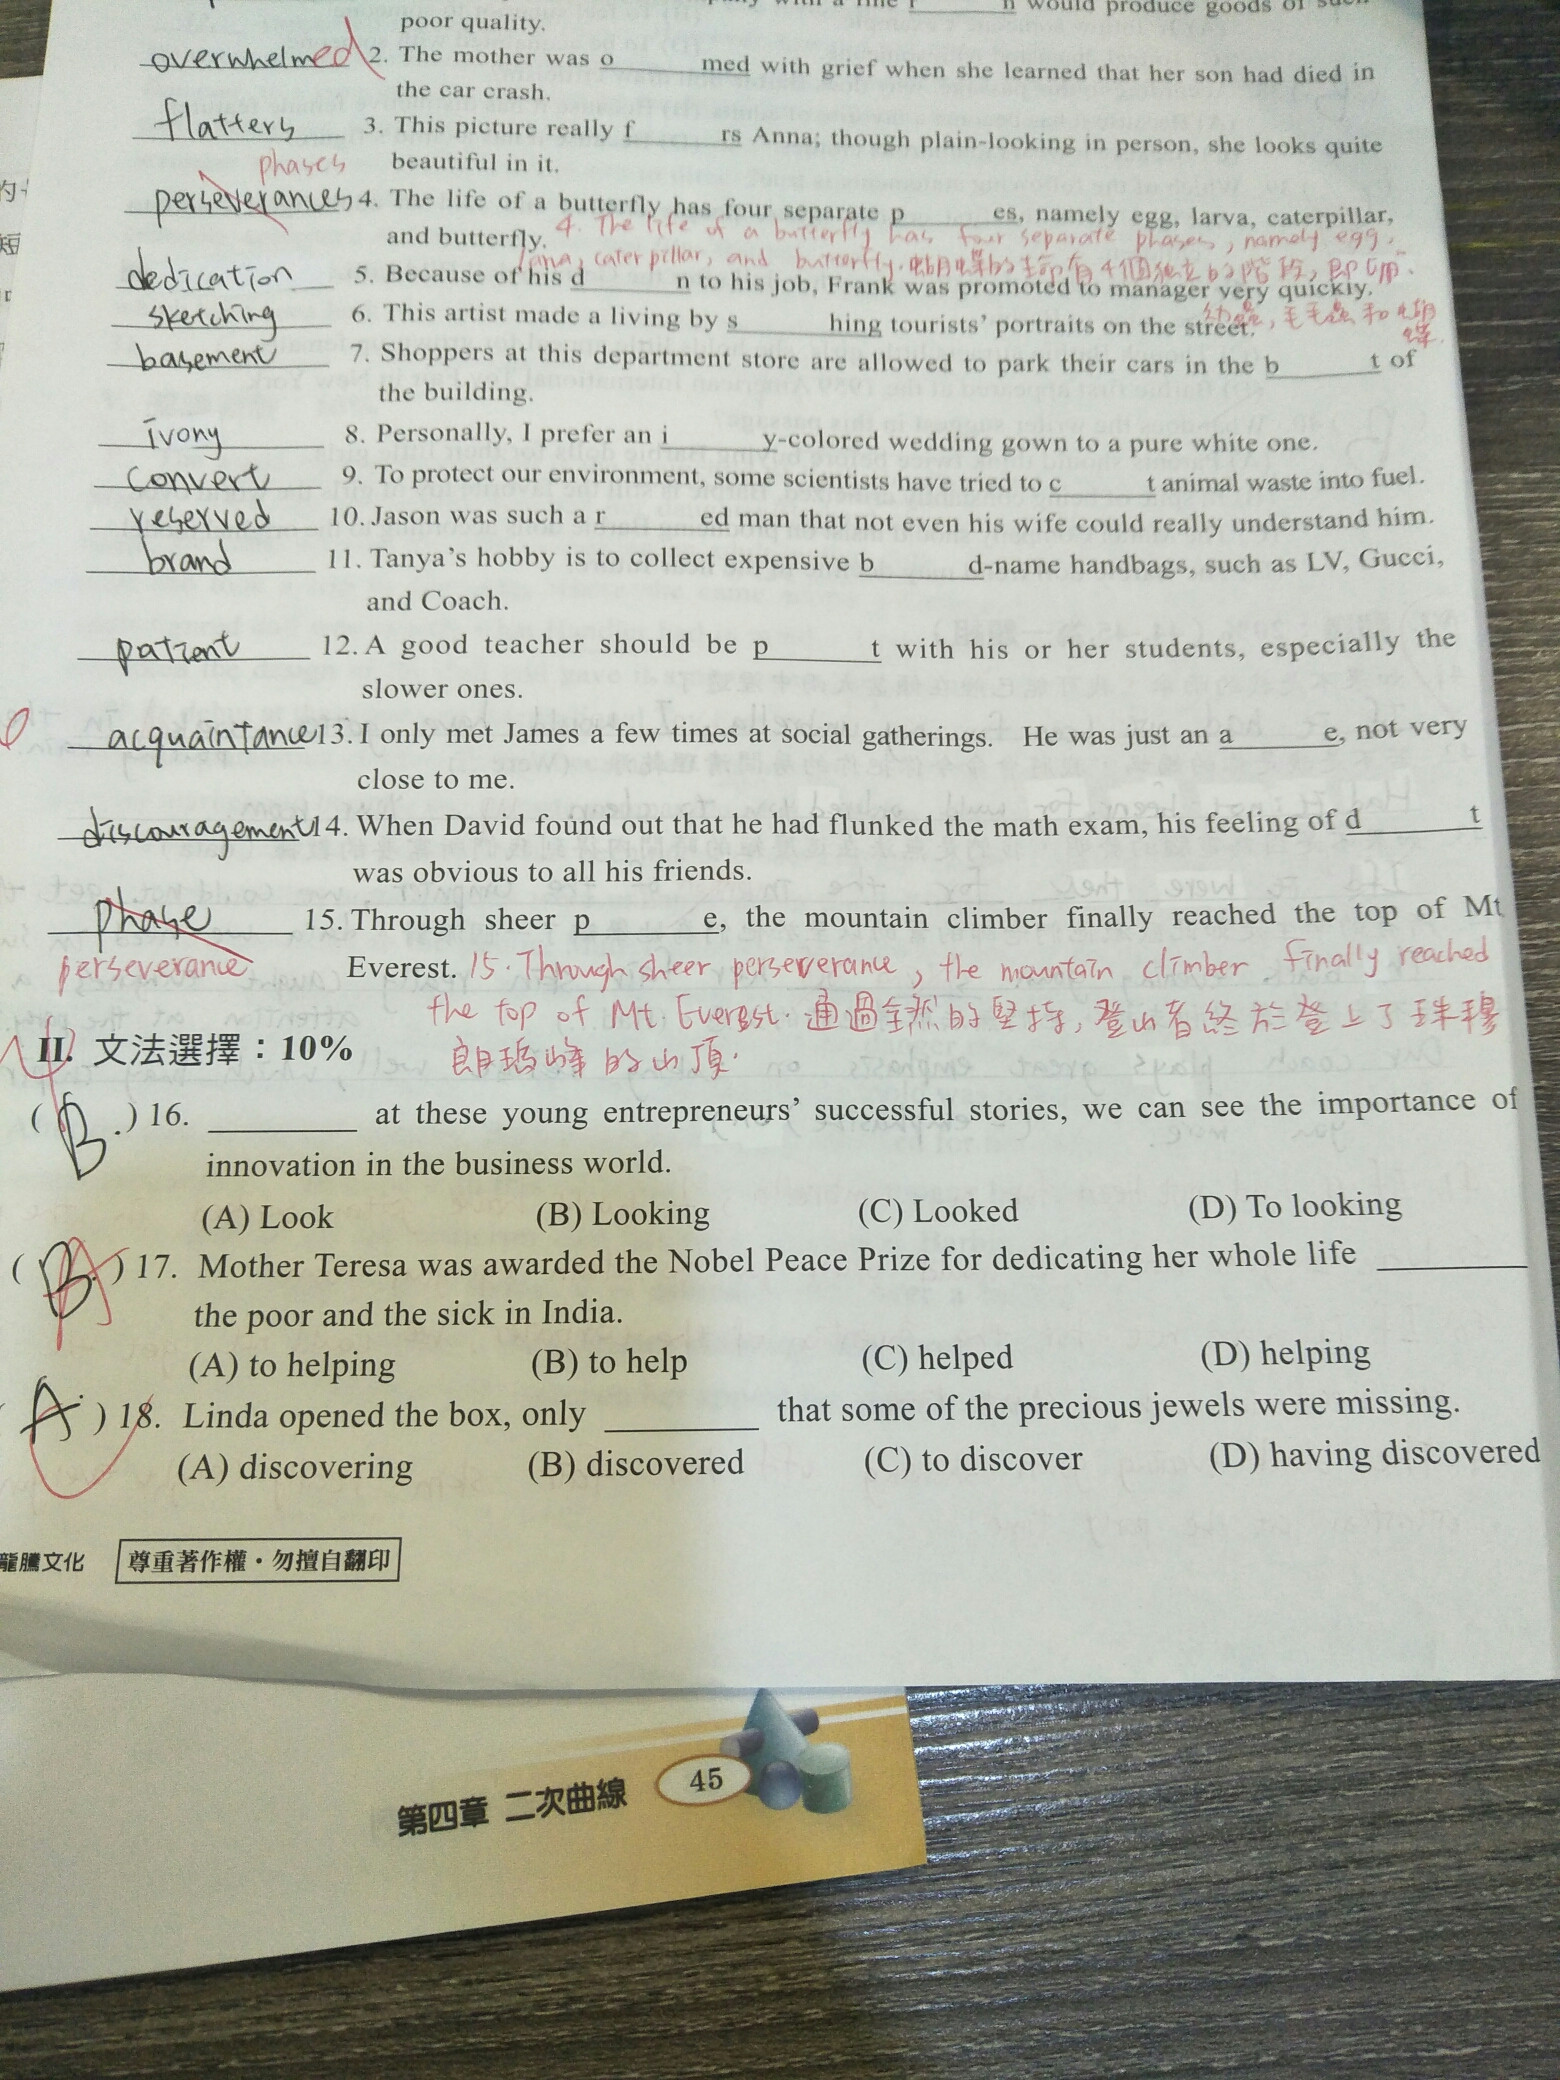 would produce goods of such
poor quality.
overwhelmed 2. The mother was o______med with grief when she learned that her son had died in
the car crash.
flatters 3. This picture really f______rs Anna; though plain-looking in person, she looks quite
beautiful in it.
phases
perseverances 4. The life of a butterfly has four separate p______es, namely egg, larva, caterpillar,
and butterfly. 4. The life of a butterfly has four separate phases, namely egg,
caterpillar, and butterfly. 蝴蝶的生命有4個獨立的階段,即卵.
幼蟲,毛毛蟲和蝴
蝶.
dedication 5. Because of his d______n to his job, Frank was promoted to manager very quickly.
sketching 6. This artist made a living by s______hing tourists' portraits on the street.
basement 7. Shoppers at this department store are allowed to park their cars in the b______t of
the building.
ivony 8. Personally, I prefer an i______y-colored wedding gown to a pure white one.
convert 9. To protect our environment, some scientists have tried to c______t animal waste into fuel.
reserved 10. Jason was such a r______ed man that not even his wife could really understand him.
brand 11. Tanya's hobby is to collect expensive b______d-name handbags, such as LV, Gucci,
and Coach.
patient 12. A good teacher should be p______t with his or her students, especially the
slower ones.
acquaintance 13. I only met James a few times at social gatherings. He was just an a______e, not very
close to me.
discouragement 14. When David found out that he had flunked the math exam, his feeling of d______t
was obvious to all his friends.
phase 15. Through sheer p______e, the mountain climber finally reached the top of Mt
perseverance Everest. 15. Through sheer perserverance, the mountain climber finally reached
the top of Mt. Everest. 通過全然的堅持,登山者終於登上了珠穆
朗瑪峰的山頂.
II. 文法選擇：10%
( B. ) 16. ______ at these young entrepreneurs' successful stories, we can see the importance of
innovation in the business world.
(A) Look (B) Looking (C) Looked (D) To looking
( B. A ) 17. Mother Teresa was awarded the Nobel Peace Prize for dedicating her whole life ______
the poor and the sick in India.
(A) to helping (B) to help (C) helped (D) helping
A ) 18. Linda opened the box, only ______ that some of the precious jewels were missing.
(A) discovering (B) discovered (C) to discover (D) having discovered
龍騰文化 尊重著作權・勿擅自翻印
第四章 二次曲線 45